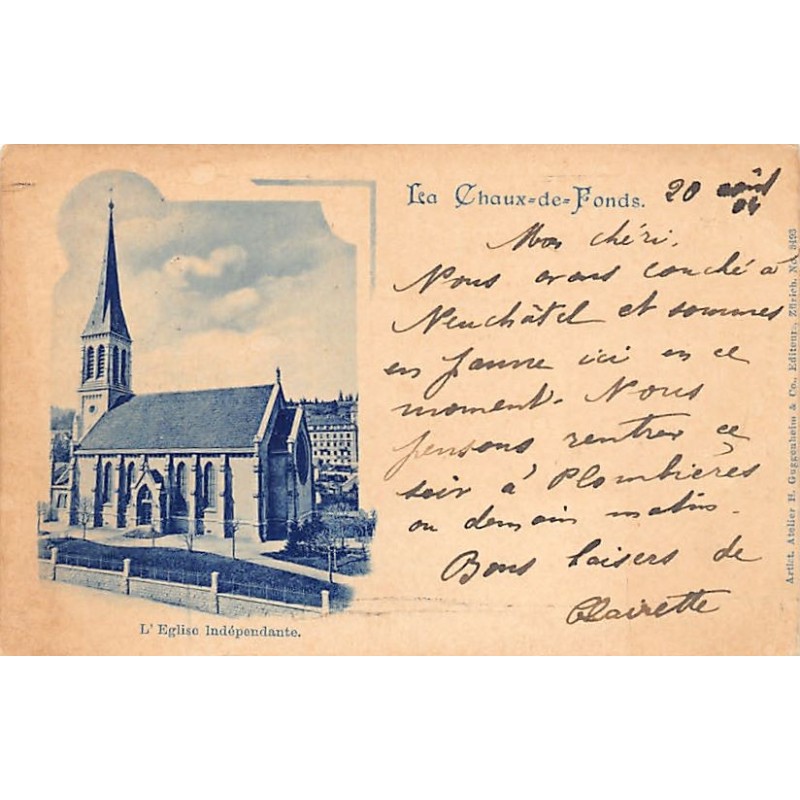 La Chaux-de-Fonds.
20 août
04
Mon chéri,
Nous avons couché à
Neuchâtel et sommes
en panne ici en ce
moment. Nous
pensons rentrer ce
soir à Plombières
ou demain matin.
Bons baisers de
Clairette
L'Eglise Indépendante.
Artist. Atelier H. Guggenheim & Co., Editeurs, Zürich. No. 3493